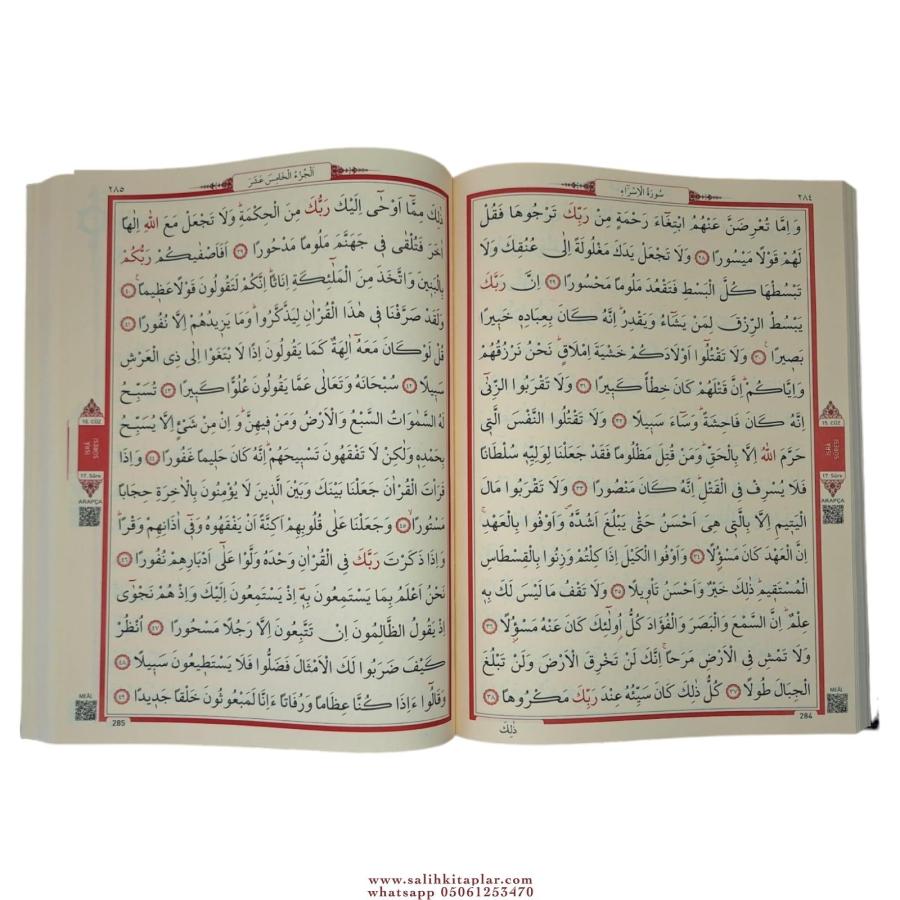 ٢٨٤
سُورَةُ الْاِسْرَاءِ
وَاِمَّا تُعْرِضَنَّ عَنْهُمُ ابْتِغَاءَ رَحْمَةٍ مِنْ رَبِّكَ تَرْجُوهَا فَقُلْ
لَهُمْ قَوْلًا مَيْسُورًا ﴿٢٨﴾ وَلَا تَجْعَلْ يَدَكَ مَغْلُولَةً اِلٰى عُنُقِكَ وَلَا
تَبْسُطْهَا كُلَّ الْبَسْطِ فَتَقْعُدَ مَلُومًا مَحْسُورًا ﴿٢٩﴾ اِنَّ رَبَّكَ
يَبْسُطُ الرِّزْقَ لِمَنْ يَشَاءُ وَيَقْدِرُ اِنَّهُ كَانَ بِعِبَادِهٖ خَبِيرًا
بَصِيرًا ﴿٣٠﴾ وَلَا تَقْتُلُوا اَوْلَادَكُمْ خَشْيَةَ اِمْلَاقٍ نَحْنُ نَرْزُقُهُمْ
وَاِيَّاكُمْ اِنَّ قَتْلَهُمْ كَانَ خِطْاً كَبِيرًا ﴿٣١﴾ وَلَا تَقْرَبُوا الزِّنٰى
اِنَّهُ كَانَ فَاحِشَةً وَسَاءَ سَبِيلًا ﴿٣٢﴾ وَلَا تَقْتُلُوا النَّفْسَ الَّتِي
حَرَّمَ اللّٰهُ اِلَّا بِالْحَقِّ وَمَنْ قُتِلَ مَظْلُومًا فَقَدْ جَعَلْنَا لِوَلِيِّهٖ سُلْطَانًا
فَلَا يُسْرِفْ فِي الْقَتْلِ اِنَّهُ كَانَ مَنْصُورًا ﴿٣٣﴾ وَلَا تَقْرَبُوا مَالَ
الْيَتِيمِ اِلَّا بِالَّتِي هِيَ اَحْسَنُ حَتّٰى يَبْلُغَ اَشُدَّهُ وَاَوْفُوا بِالْعَهْدِ
اِنَّ الْعَهْدَ كَانَ مَسْؤُلًا ﴿٣٤﴾ وَاَوْفُوا الْكَيْلَ اِذَا كِلْتُمْ وَزِنُوا بِالْقِسْطَاسِ
الْمُسْتَقِيمِ ذٰلِكَ خَيْرٌ وَاَحْسَنُ تَأْوِيلًا ﴿٣٥﴾ وَلَا تَقْفُ مَا لَيْسَ لَكَ بِهٖ
عِلْمٌ اِنَّ السَّمْعَ وَالْبَصَرَ وَالْفُؤَادَ كُلُّ اُولٰئِكَ كَانَ عَنْهُ مَسْؤُلًا ﴿٣٦﴾
وَلَا تَمْشِ فِي الْاَرْضِ مَرَحًا اِنَّكَ لَنْ تَخْرِقَ الْاَرْضَ وَلَنْ تَبْلُغَ
الْجِبَالَ طُولًا ﴿٣٧﴾ كُلُّ ذٰلِكَ كَانَ سَيِّئُهُ عِنْدَ رَبِّكَ مَكْرُوهًا ﴿٣٨﴾
ذٰلِكَ
284
15. CÜZ
İSRÂ
SÛRESİ
17. Sûre
ARAPÇA
MEÂL
٢٨٥
اَلْجُزْءُ الْخَامِسَ عَشَرَ
ذٰلِكَ مِمَّا اَوْحٰى اِلَيْكَ رَبُّكَ مِنَ الْحِكْمَةِ وَلَا تَجْعَلْ مَعَ اللّٰهِ اِلٰهًا
اٰخَرَ فَتُلْقٰى فِي جَهَنَّمَ مَلُومًا مَدْحُورًا ﴿٣٩﴾ اَفَاَصْفٰيكُمْ رَبُّكُمْ
بِالْبَنِينَ وَاتَّخَذَ مِنَ الْمَلٰئِكَةِ اِنَاثًا اِنَّكُمْ لَتَقُولُونَ قَوْلًا عَظِيمًا ﴿٤٠﴾
وَلَقَدْ صَرَّفْنَا فِي هٰذَا الْقُرْاٰنِ لِيَذَّكَّرُوا وَمَا يَزِيدُهُمْ اِلَّا نُفُورًا ﴿٤١﴾
قُلْ لَوْ كَانَ مَعَهُ اٰلِهَةٌ كَمَا يَقُولُونَ اِذًا لَابْتَغَوْا اِلٰى ذِي الْعَرْشِ
سَبِيلًا ﴿٤٢﴾ سُبْحَانَهُ وَتَعَالٰى عَمَّا يَقُولُونَ عُلُوًّا كَبِيرًا ﴿٤٣﴾ تُسَبِّحُ
لَهُ السَّمٰوَاتُ السَّبْعُ وَالْاَرْضُ وَمَنْ فِيهِنَّ وَاِنْ مِنْ شَيْءٍ اِلَّا يُسَبِّحُ
بِحَمْدِهٖ وَلٰكِنْ لَا تَفْقَهُونَ تَسْبِيحَهُمْ اِنَّهُ كَانَ حَلِيمًا غَفُورًا ﴿٤٤﴾ وَاِذَا
قَرَأْتَ الْقُرْاٰنَ جَعَلْنَا بَيْنَكَ وَبَيْنَ الَّذِينَ لَا يُؤْمِنُونَ بِالْاٰخِرَةِ حِجَابًا
مَسْتُورًا ﴿٤٥﴾ وَجَعَلْنَا عَلٰى قُلُوبِهِمْ اَكِنَّةً اَنْ يَفْقَهُوهُ وَفِي اٰذَانِهِمْ وَقْرًا
وَاِذَا ذَكَرْتَ رَبَّكَ فِي الْقُرْاٰنِ وَحْدَهُ وَلَّوْا عَلٰى اَدْبَارِهِمْ نُفُورًا ﴿٤٦﴾
نَحْنُ اَعْلَمُ بِمَا يَسْتَمِعُونَ بِهٖ اِذْ يَسْتَمِعُونَ اِلَيْكَ وَاِذْ هُمْ نَجْوٰى
اِذْ يَقُولُ الظَّالِمُونَ اِنْ تَتَّبِعُونَ اِلَّا رَجُلًا مَسْحُورًا ﴿٤٧﴾ اُنْظُرْ
كَيْفَ ضَرَبُوا لَكَ الْاَمْثَالَ فَضَلُّوا فَلَا يَسْتَطِيعُونَ سَبِيلًا ﴿٤٨﴾
وَقَالُوا ءَاِذَا كُنَّا عِظَامًا وَرُفَاتًا ءَاِنَّا لَمَبْعُوثُونَ خَلْقًا جَدِيدًا ﴿٤٩﴾
285
15. CÜZ
İSRÂ
SÛRESİ
17. Sûre
ARAPÇA
MEÂL
www.salihkitaplar.com
whatsapp 05061253470